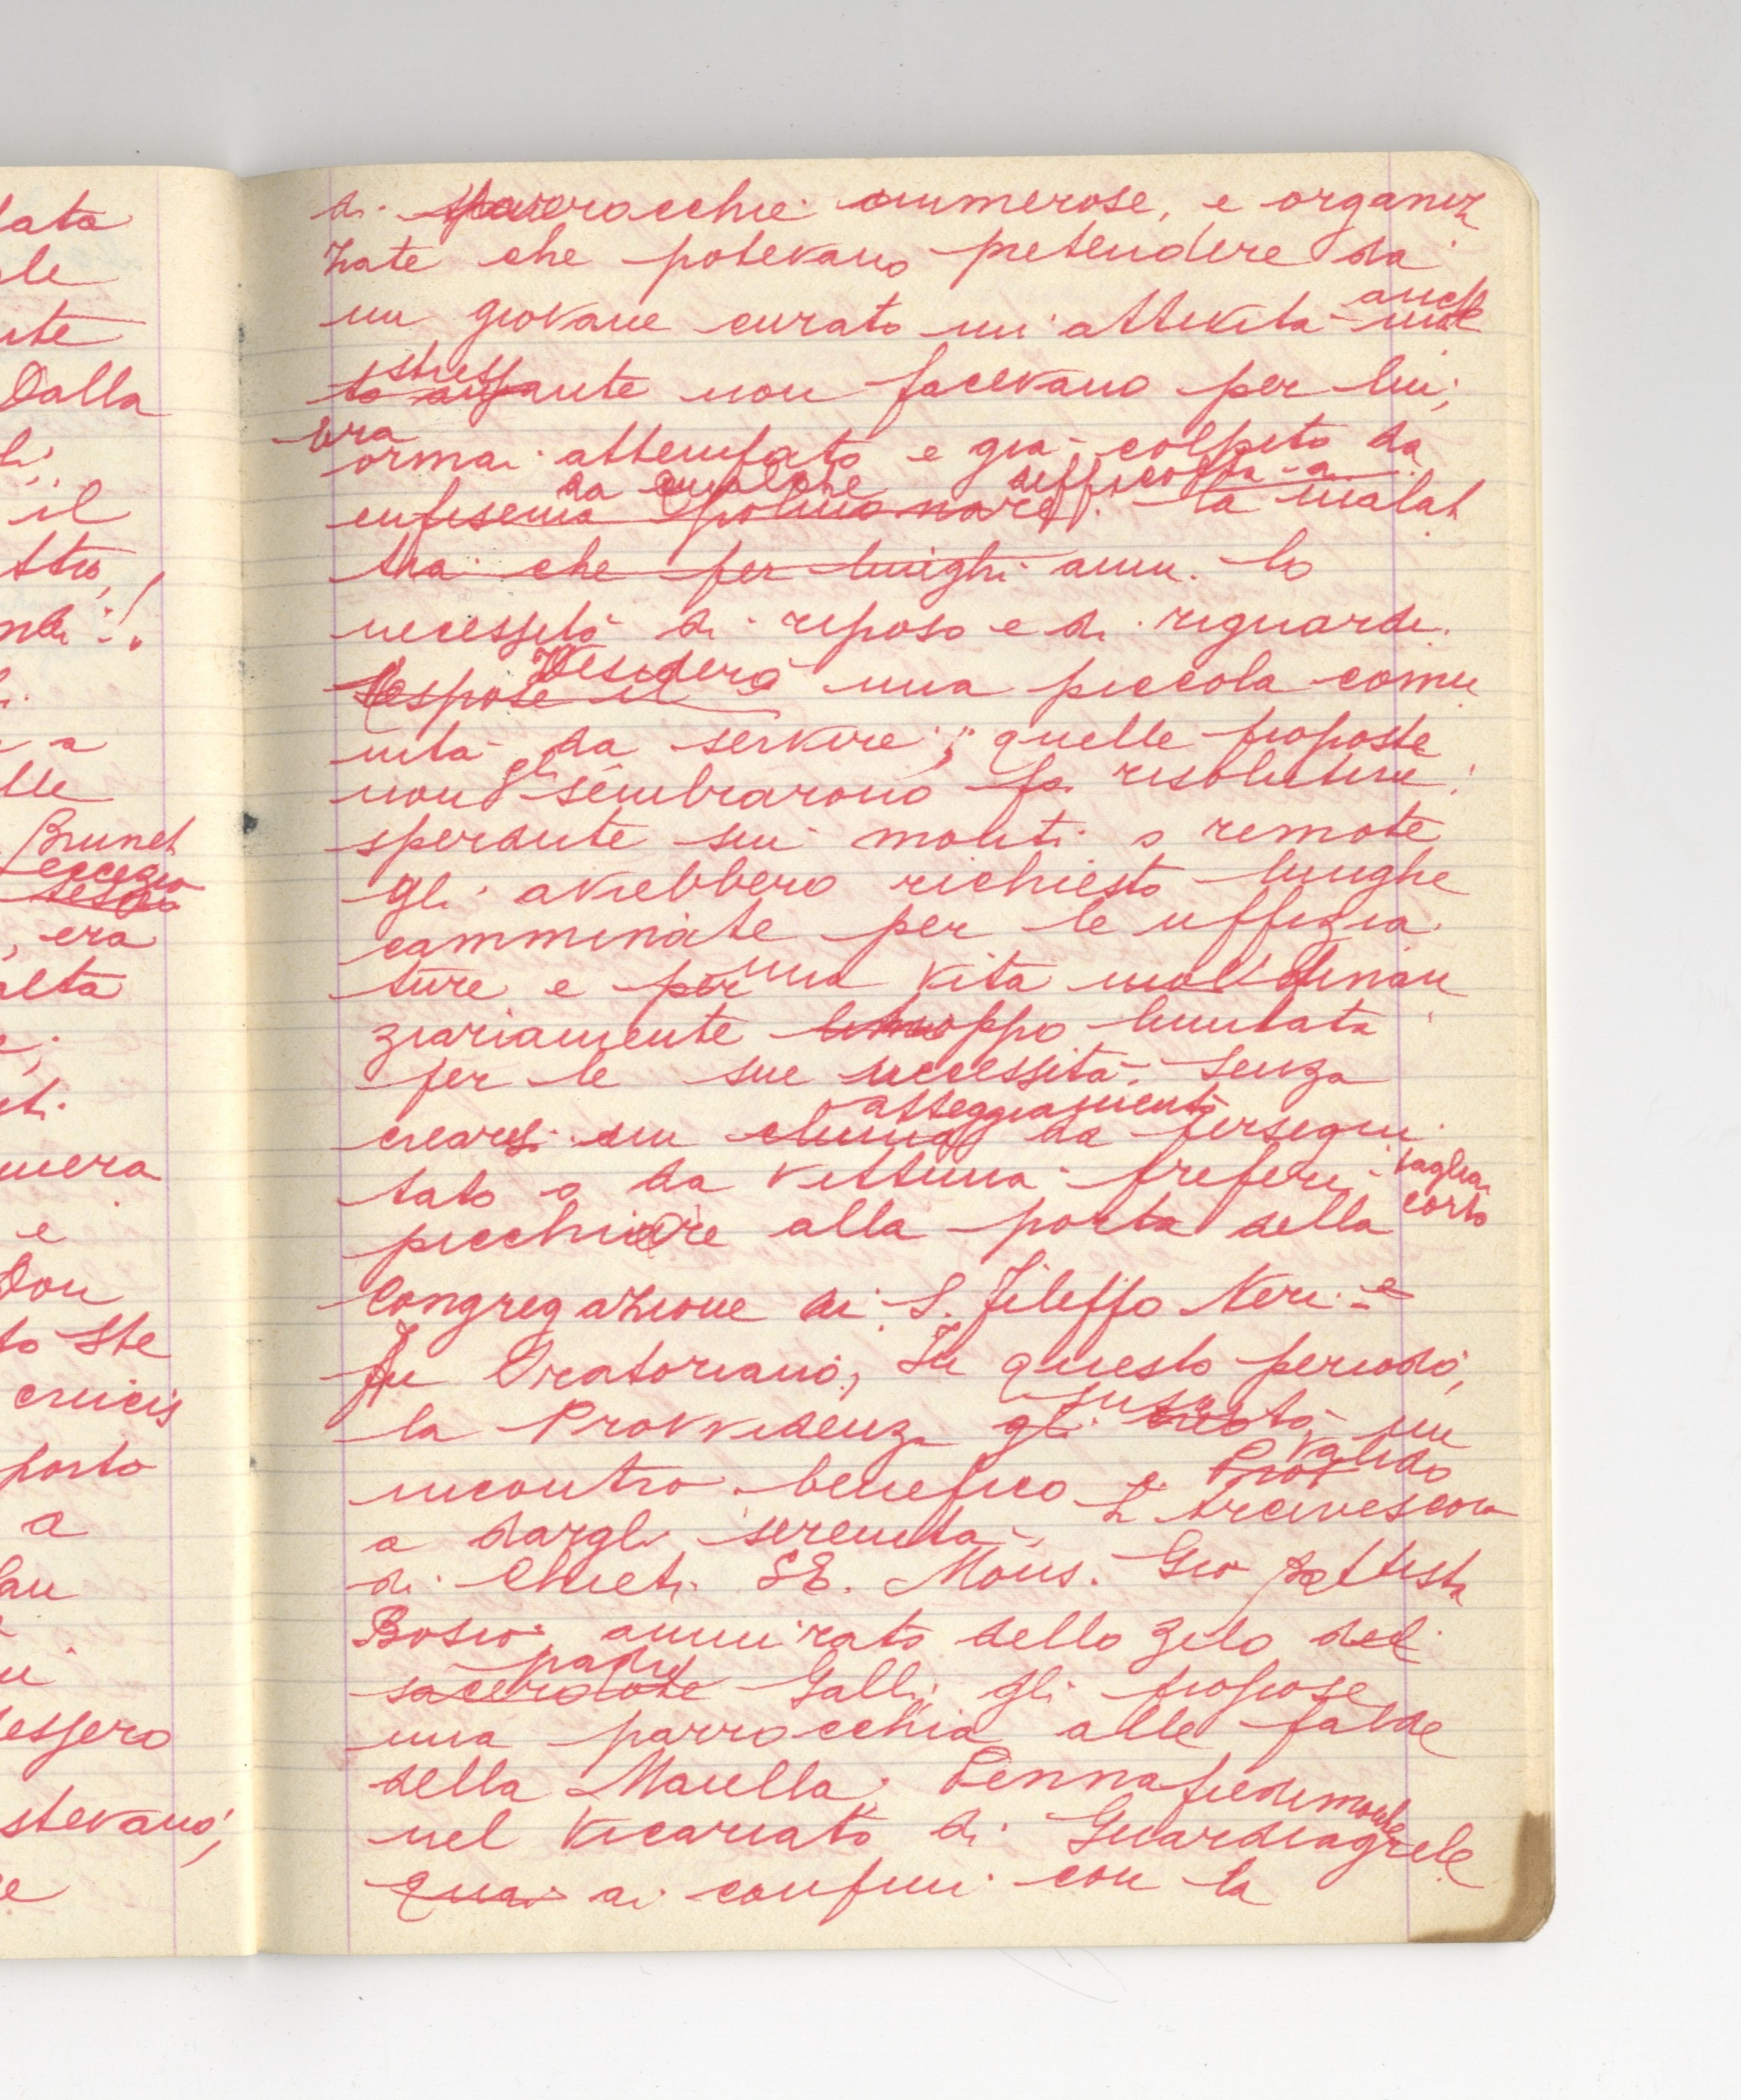 lata
le
nte
Dalla
li,
il
tto,
i
a
lle
Brunet
eccezio
era
alta
e;
uera
e
Don
to Ste
crucis
porto
a
lau
essero
stevano,
e
di parrocchie numerose, e organiz
zate che potevano pretendere da
un giovane curato un'attività anche
stressante non facevano per lui;
era
ormai attempato e già colpito da
da qualche difficoltà a
enfisema polmonare. la malat
tia che per lunghi anni lo
necessità di riposo e di riguardi.
Desiderò
Respose il una piccola comu
nità da servire; quelle proposte
non gli sembrarono fo risolutive:
sperdute sui monti o remote
gli avrebbero richiesto lunghe
camminate per le uffizia
ture e per una vita finan
ziariamente troppo limitata
per le sue necessità. Senza
atteggiamento
crearsi un clima da persegui
tato o da vittima preferì tagliar corto
picchiare alla porta della
Congregazione di S. Fileppo Neri e
fu Oratoriano, In questo periodo,
la Provvidenza gli suscitò un
valido
incontro benefico e
a dargli serenità. L'Arcivescovo
di Chieti SE. Mons. Gio Battista
Bosio ammirato dello zelo del
padre
sacerdote Galli, gli propose
una parrocchia alle falde
della Maiella, Pennapiedimonte
nel Vicariato di Guardiagrele
quasi ai confini con la